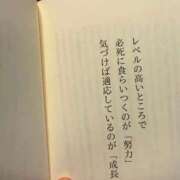 レベルの高いところで
必死に食らいつくのが「努力」
気づけば適応しているのが「成長